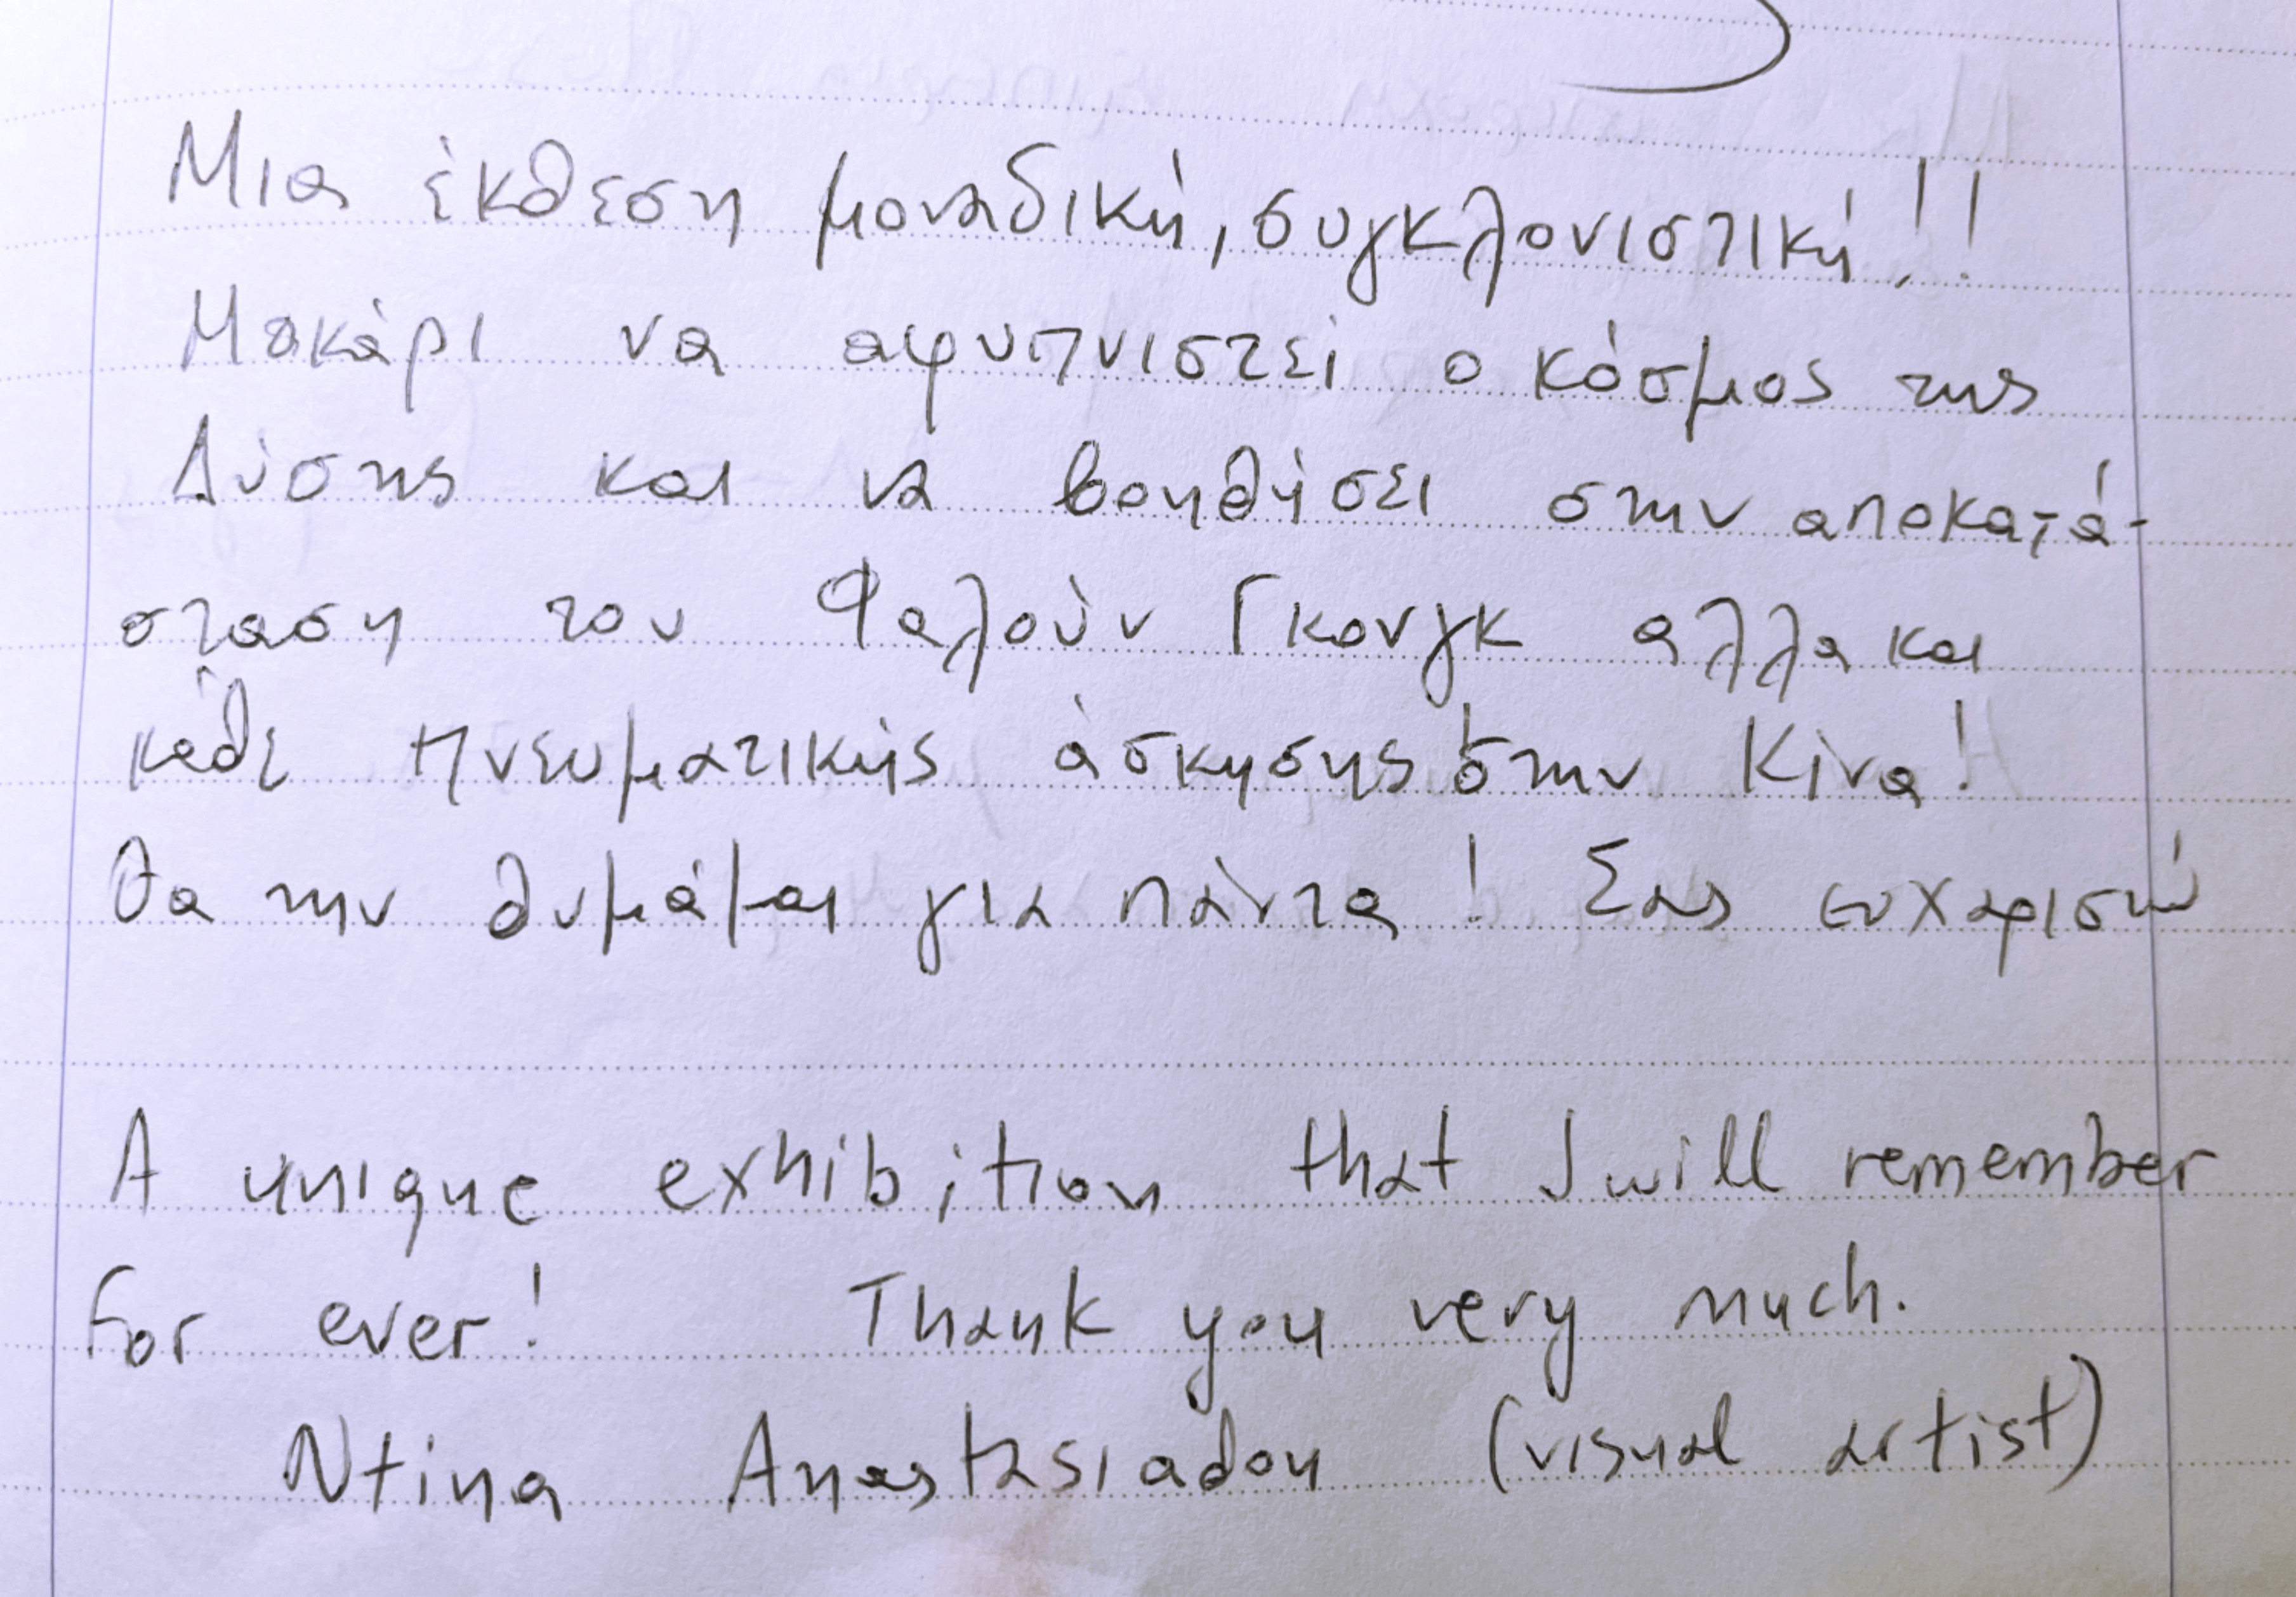 Μια έκθεση μοναδική, συγκλονιστική!!
Μακάρι να αφυπνιστεί ο κόσμος της
Δύσης και να βοηθήσει στην αποκατά-
σταση του Φαλούν Γκονγκ αλλα και
κάθε πνευματικής άσκησης στην Κίνα!
Θα την θυμάμαι για πάντα! Σας ευχαριστώ
A unique exhibition that I will remember
for ever! Thank you very much.
Ntina Anastasiadou (visual artist)